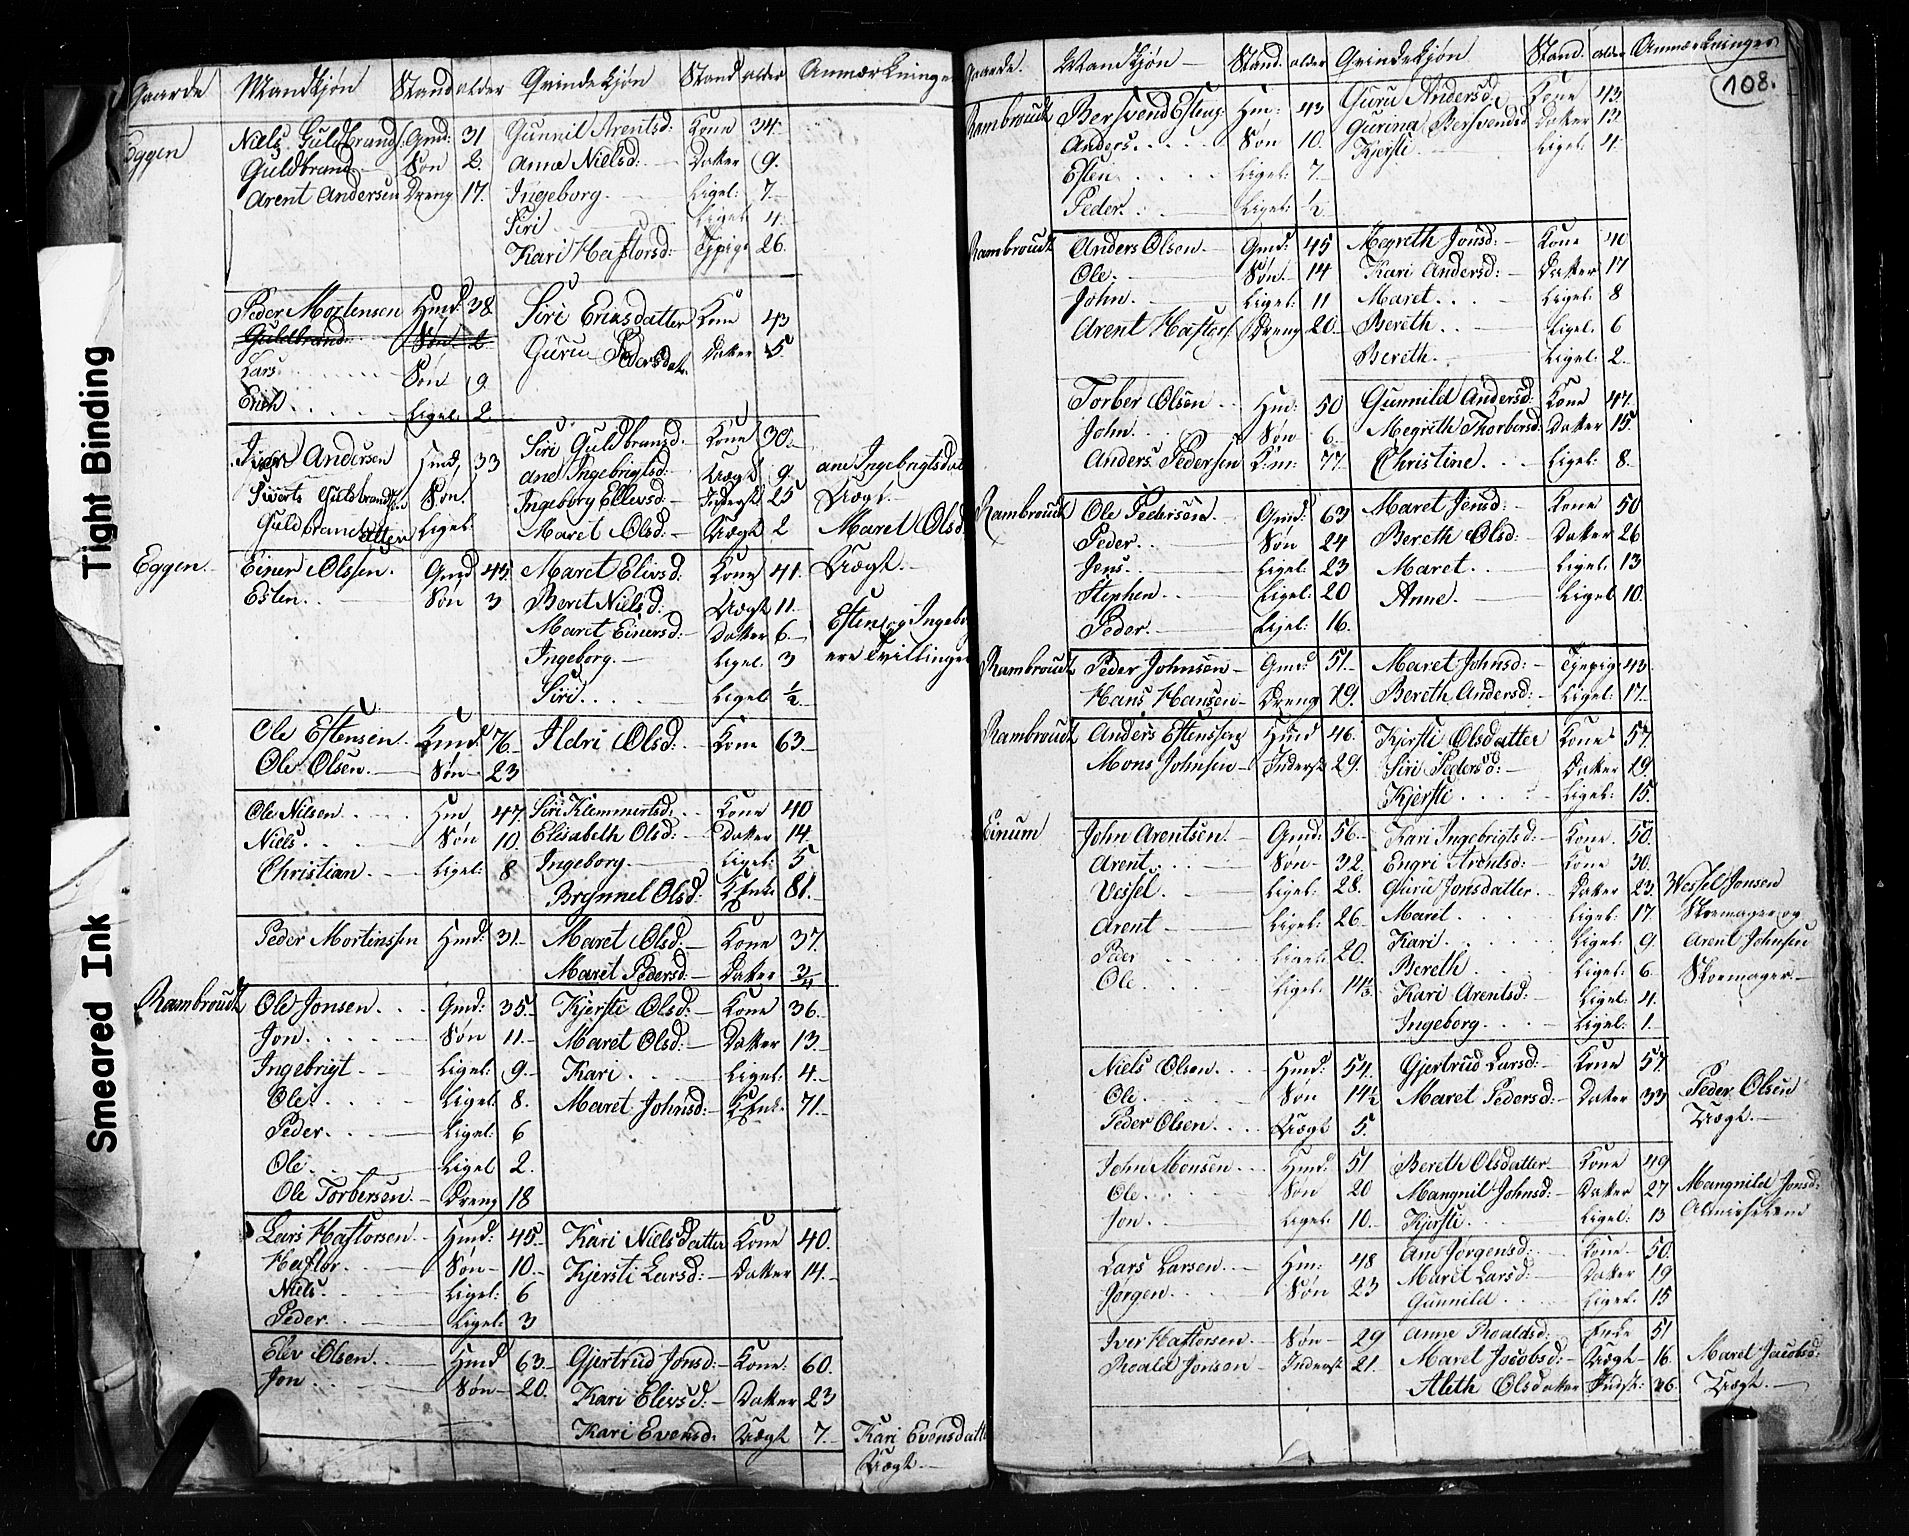 Tight Binding
Smeared Ink
Gaarde Mandkjøn Stand alder Qvindekjøn Stand alder Anmærkninger
Eggen Niels Guldbrands: Gmd: 31 Gunnil Arentsd: Kone 34
Guldbrand Søn 2 Anne Nielsd: Datter 9
Arent Andersen Dreng 17 Ingeborg Ligel: 7
Siri Ligel: 4
Kari Haftorsd: Tjpige 26
Peder Mortensen Hmd: 38 Siri Ericsdatter Kone 43
Guldbrand Søn 2 Guru Pedersdat. Datter 5
Lars Søn 9
Erich Ligel: 2
Iver Andersen Hmd 33 Siri Guldbransd. Kone 30
Siverts Guldbrand Søn ane Ingebrigtsd: Lægt 9 ane Ingebrigtsdat
Guldbrand Ligel: Ingeborg Ellevsd: Inderst 25 Lægt
Maret Olsd: Lægt 2 Maret Olsd
Eggen Einer Olssen Gmd 45 Maret Elivsd. Kone 41 Lægt
Esten Søn 3 Beret Nielsd: Lægt 11
Maret Einersd: Datter 6 Esten og Ingebor
Ingeborg Ligel: 3 ere Tvillinger
Siri Ligel: ½
Ole Estensen Hmd: 76 Ildri Olsd: Kone 63
Ole Olsen Søn 23
Ole Nilsen Hm 47 Siri Klemmertsd: Kone 40
Niels Søn 10 Elisabeth Olsd: Datter 14
Christian Ligel: 8 Ingeborg Ligel: 5
Brynnel Olsd: Enke 81
Peder Mortenssen Hmd: 31 Maret Olsd: Kone 37
Maret Pedersd: Datter ¾
Rambroudt Ole Jonsen Gmd: 35 Kjersti Olsd: Kone 36
Jon Søn 11 Maret Olsd: Datter 13
Ingebrigt Ligel: 9 Kari Ligel: 4
Ole Ligel: 8 Maret Johnsd: Enke 71
Peder Ligel: 6
Ole Ligel 2
Ole Torbersen Dreng 18
Lars Haftorsen Hmd: 45 Kari Nielsdatter Kone 40
Haftor Søn 10 Kjersti Larsd: Datter 14
Niels Ligel: 6
Peder Ligel: 3
Elev Olsen Hmd 63 Gjertrud Jonsd: Kone: 60
Jon Søn 20 Kari Elevsd: Datter 23
Kari Evensd: Lægt 7 Kari Evensdatt
Lægt
Gaarde Mandkjøn Stand. alder Qvindekjøn Stand. alder Anmærkninger
108.
Rambroudt Bersvend Estens: Hm: 43 Guru Andersd: Kone 43
Anders Søn 10 Gurina Bersvendsd Datter 13
Esten Ligel: 7 Kjersti Ligel: 4
Peder Ligel: ½
Rambroudt Anders Olsen Gmd: 45 Megreth Jonsd: Kone 40
Ole Søn 14 Kari Andersd: Datter 17
John Ligel: 11 Maret Ligel: 8
Arent Haftors: Dreng 20 Bereth Ligel: 6
Bereth Ligel: 2
Torber Olsen Hm: 50 Gunnild Andersd: Kone 47
John Søn 6 Megreth Thorbersd: Datter 15
Anders Pedersen 77 Christine Ligel: 8
Rambroudt Ole Pedersen Gmd: 63 Maret Jensd: Kone 50
Peder Søn 24 Bereth Olsd: Datter 26
Jens Ligel: 23 Maret Ligel: 13
Stephen Ligel: 20 Anne Ligel 10
Peder Ligel: 16
Rambroudt Peder Johnsen Gmd: 51 Maret Johnsd: Tjepig 43
Hans Hansen Dreng 19 Bereth Andersd: Ligel: 17
Rambroudt Anders Estenssen Hmd 46 Kjersti Olsdatter Kone 57
Mons Johnsen Inderst 29 Siri Pedersd: Datter 19
Kjersti Ligel: 15
Einum John Arentsen Gmd: 56 Kari Ingebrigtsd: Kone 50
Arent Søn 32 Engri Arentsd: Kone 30
Vessel Ligel: 28 Guru Jonsdatter Datter 23 Wessel Jonsen
Arent Ligel: 26 Marit Ligel: 17 Skomager og
Peder Ligel: 20 Kari Ligel: 9 Arent Johnsen
Ole Ligel: 14½ Bereth Ligel: 6 Skomager
Kari Arentsd: Ligel: 4
Ingeborg Ligel: 1
Niels Olsen Hmd: 54 Gjertrud Larsd: Kone 57
Ole Søn 14½ Maret Pedersd: Datter 33 Peder Olsen
Peder Olsen Lægt 5 Lægt
John Monsen Hmd: 51 Bereth Olsdatter Kone 49
Ole Søn 20 Mangnil Johnsd: Datter 27 Mangnild Jonsd:
Jon Ligel: 10 Kjersti Ligel: 13
Lars Larsen Hm: 48 Ane Jørgensd: Kone 50
Jørgen Søn 23 Maret Larsd: Datter 19
Gunnild Ligel: 15
Iver Haftorsen Søn 29 Anne Roaldsd: Enke 51
Roald Jonsen Inderst 21 Maret Jacobsd: Lægt 16 Maret Jacobsd:
Aleth Olsdatter Indst: 26 Lægt